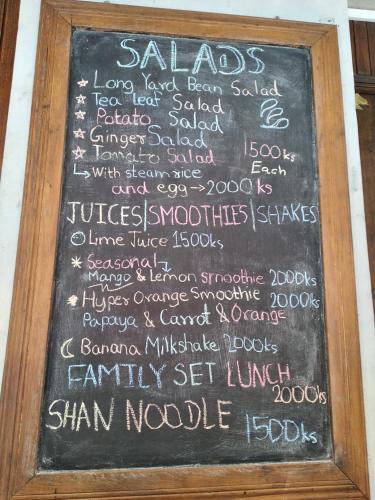 SALADS
Long Yard Bean Salad
Tea leaf Salad
Potato Salad
Ginger Salad
Tomato Salad 1500ks
Each
With steam rice
and egg → 2000 ks
JUICES|SMOOTHIES|SHAKES
Lime Juice 1500ks
Seasonal
Mango & Lemon smoothie 2000ks
Hyper Orange Smoothie 2000ks
Papaya & Carrot & Orange
Banana Milkshake 2000ks
FAMILY SET LUNCH
2000ks
SHAN NOODLE
1500ks